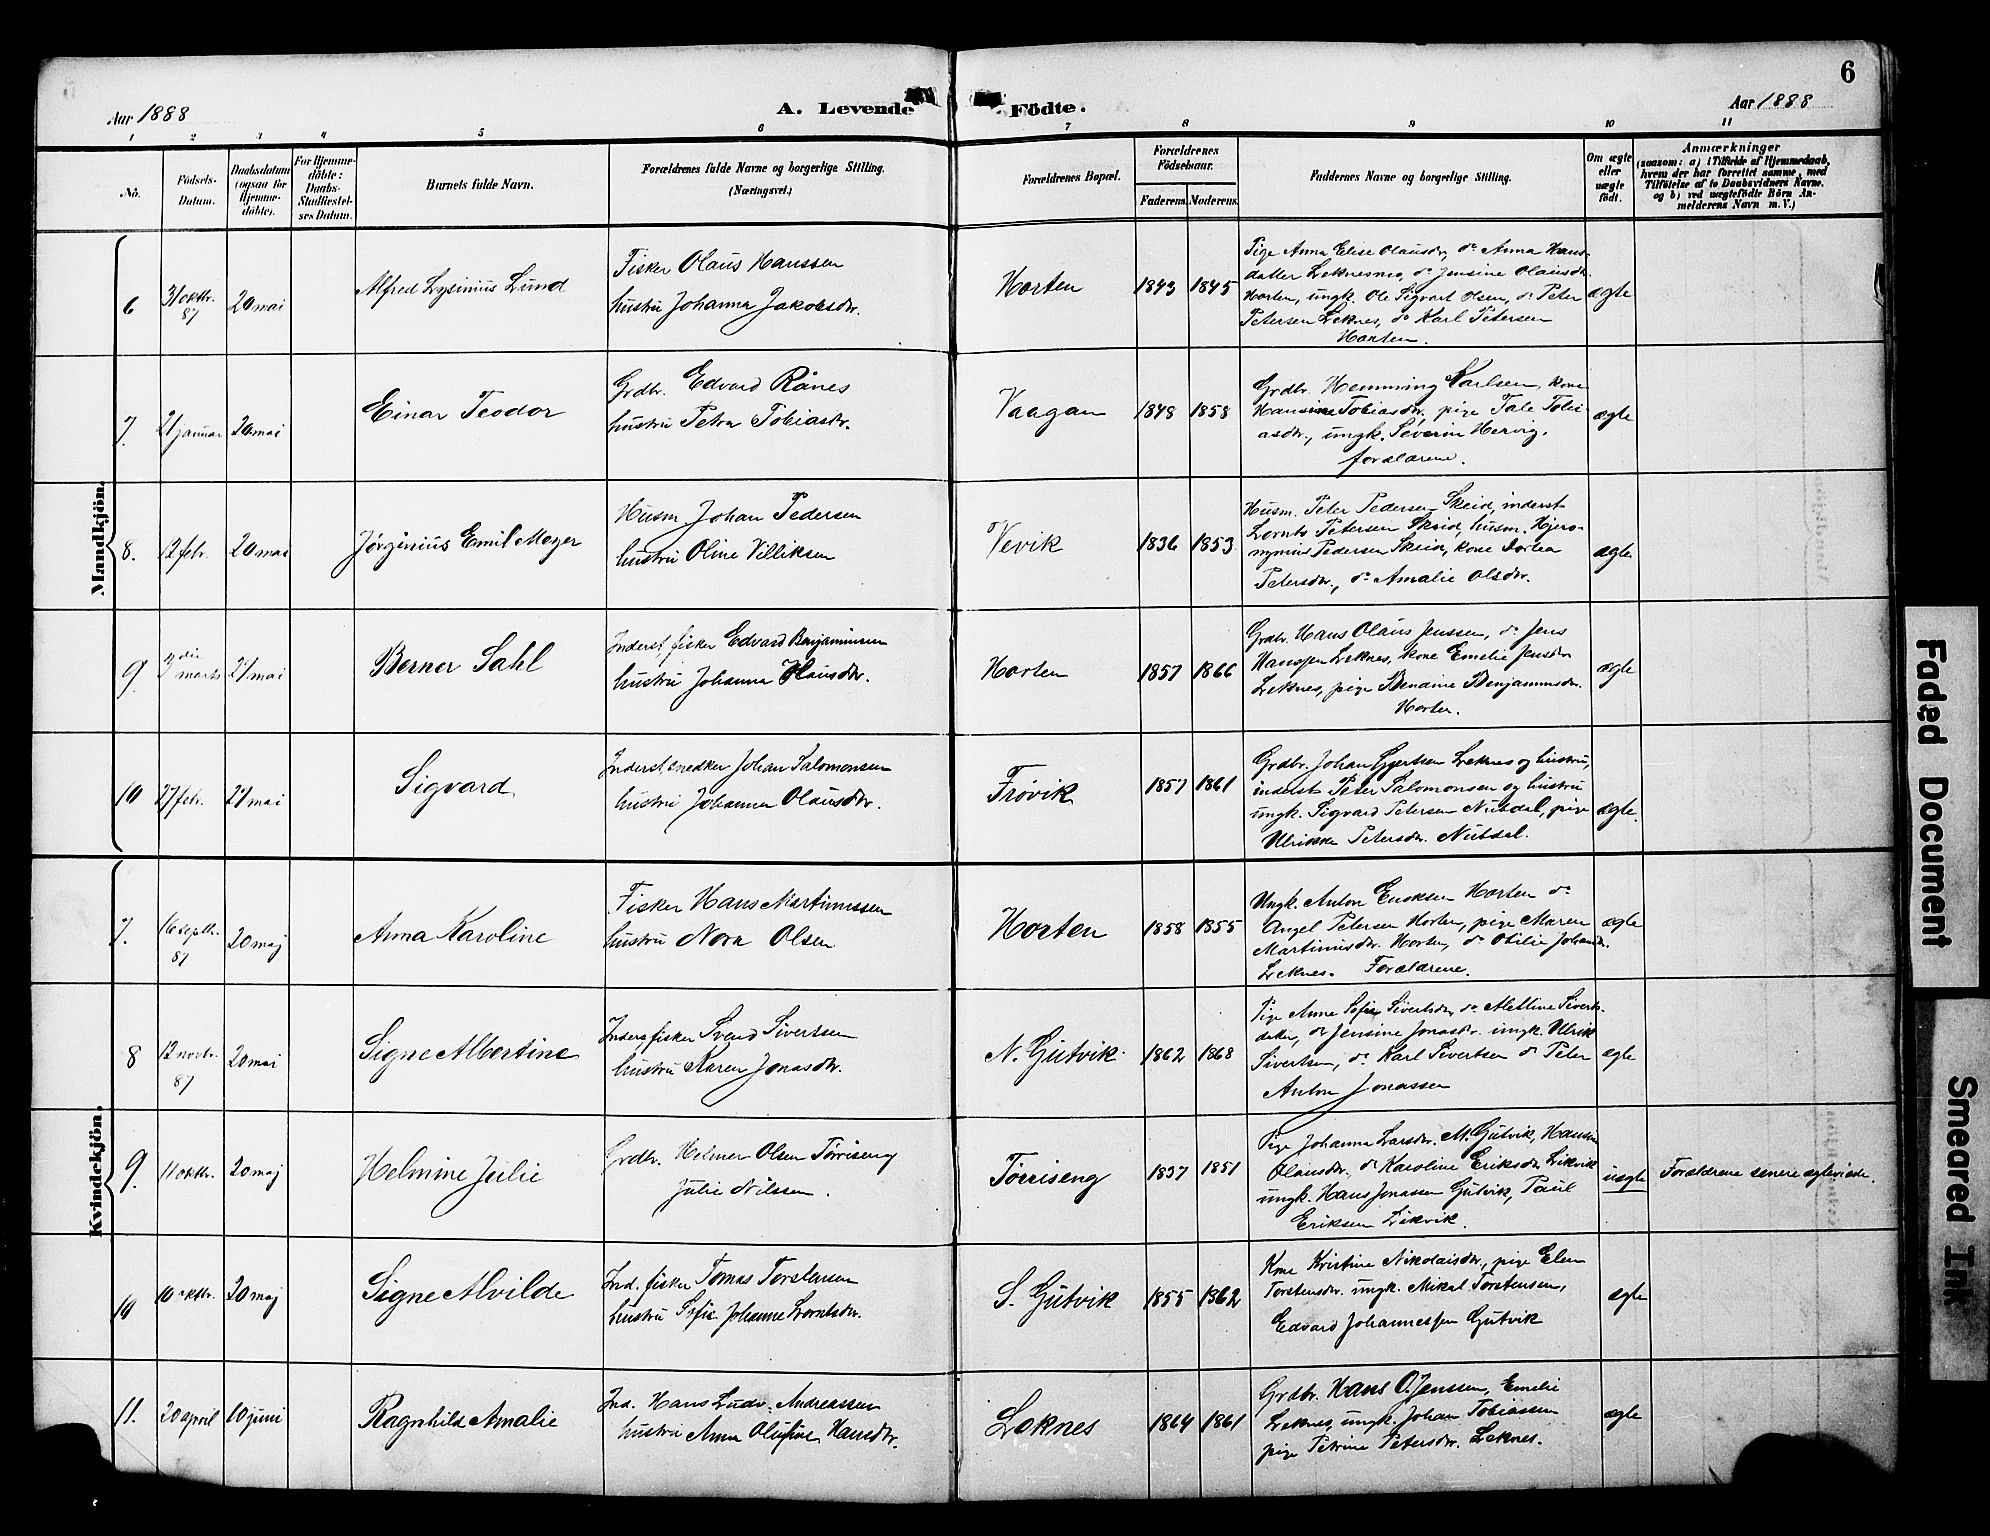 6
Aar 1888
A. Levende Födte.
Aar 1888
1 2 3 4 5 6 7 8 9 10 11
No.
Födsels-Datum.
Daabsdatum (ogsaa for Hjemmedöbte).
For Hjemmedöbte: Daabs-Stadfæstelses Datum.
Barnets fulde Navn.
Forældrenes fulde Navne og borgerlige Stilling. (Næringsvei.)
Forældrenes Bopæl.
Forældrenes Födselsaar.
Faderens. Moderens.
Faddernes Navne og borgerlige Stilling.
Om ægte eller uægte födt.
Anmærkninger
(saasom: a) i Tilfælde af Hjemmedaab, hvem der har forrettet samme, med Tilföielse af to Daabsvidners Navne, og b) ved uægtefödte Börn Anmelderens Navn m. V.)
Mandkjön.
6
31 oktbr. 87
20 mai
Alfred Lysinius Lund
Fisker Olaus Hanssen
hustru Johanna Jakobsdtr.
Horten
1843 1845
Pige Anna Elise Olausdtr, do Anna Hans-
datter Leknesnes, do Jensine Olausdtr.
Horten, ungk. Ole Sigvart Olsen, do Peter
Petersen Leknes, do Karl Petersen
Horten.
ægte
7.
21 januar
20 mai
Einar Teodor
Grdbr. Edvard Rånes
hustru Petra Tobiasdtr.
Vaagan
1848 1858
Grdbr. Hemming Karlsen, kone
Hansine Tobiasdtr, pige Tale Tobi-
asdtr., ungk. Severin Hervig.
forældrene.
ægte
8.
12 febr.
20 mai
Jørginius Emil Meyer
Husm. Johan Pedersen
hustru Oline Villiksen
Vevik
1836 1853
Husm. Peter Pedersen Skeid, inderst
Lornts Petersen Skeid, husm. Hjero-
nymus Pedersen Skeid, kone Dortea
Petersdtr., do Amalie Olsdtr.
ægte
9.
3die marts
21 mai
Berner Sahl
Inderst, fisker Edvard Benjaminsen
hustru Johanna Olausdtr.
Horten
1857 1866
Grdbr. Hans Olaus Jenssen, do Jens
Hanssen Leknes, kone Emelie Jensdtr
Leknes, pige Bendine Benjaminsdtr.
Horten.
ægte
10
27 febr.
21 mai
Sigvard
Inderst, snedker Johan Salomonsen
hustru Johanna Olausdtr.
Frøvik
1857 1861
Grdbr. Johan Gjertsen Leknes og hustru,
inderst Peter Salomonsen og hustru
ungk. Sigvard Petersen Nubdal, pige
Ulrikke Petersdtr. Nubdal.
ægte.
Kvindekjön.
7.
16 septbr. 87
20 maj
Anna Karoline
Fisker Hans Martinussen
hustru Nora Olsen
Horten
1858 1855
Ungk. Anton Enoksen Horten do
Angel Petersen Horten, pige Maren
Martinusdtr. Horten, do Otilie Johansdtr.
Leknes. Forældrene.
ægte
8
12 novbr. 87
20 mai
Signe Albertine
Inders fisker Svend Sivertsen
hustru Karen Jonasdtr.
N. Gutvik
1862 1868
Pige Anne Sofie Sivertsdtr, do Alettine Siverts-
datter, do Jensine Jonasdtr. ungk. Ulrik
Sivertsen, do Karl Sivertsen do Peter
Anton Jonassen
ægte
9.
11 oktbr.
20 maj
Helmine Julie
Grdbr. Helmer Olsen Tørriseng
Julie Nilssen.
Tørriseng
1837 1851
Pige Johanna Larsdtr. M. Gutvik, Hansine
Olausdtr. do Karoline Eriksdtr Likvik
ungk. Hans Jonassen Gutvik, Paul
Eriksen Likvik.
uægte
Forældrene senere ægteviede.
10
10 oktbr.
20 maj
Signe Alvilde
Ind. fisker Tomas Torstensen
hustru Sofie Johanne Lorntsdtr.
S. Gutvik
1855 1862
Kone Kristine Nikolaisdtr, pige Elen
Torstensdtr. ungk. Mikal Torstensen,
Edvard Johannessen Gutvik
ægte
11.
20 april
10 juni
Ragnhild Amalie
Ind. Hans Ludv. Andreassen
hustru Anna Olufine Hansdtr.
Leknes
1864 1861
Grdbr. Hans O. Jenssen, Emelie
Leknes, ungk. Johan Tobiassen
pige Petrine Petersdtr. Leknes.
ægte
Faded Document
Smeared Ink